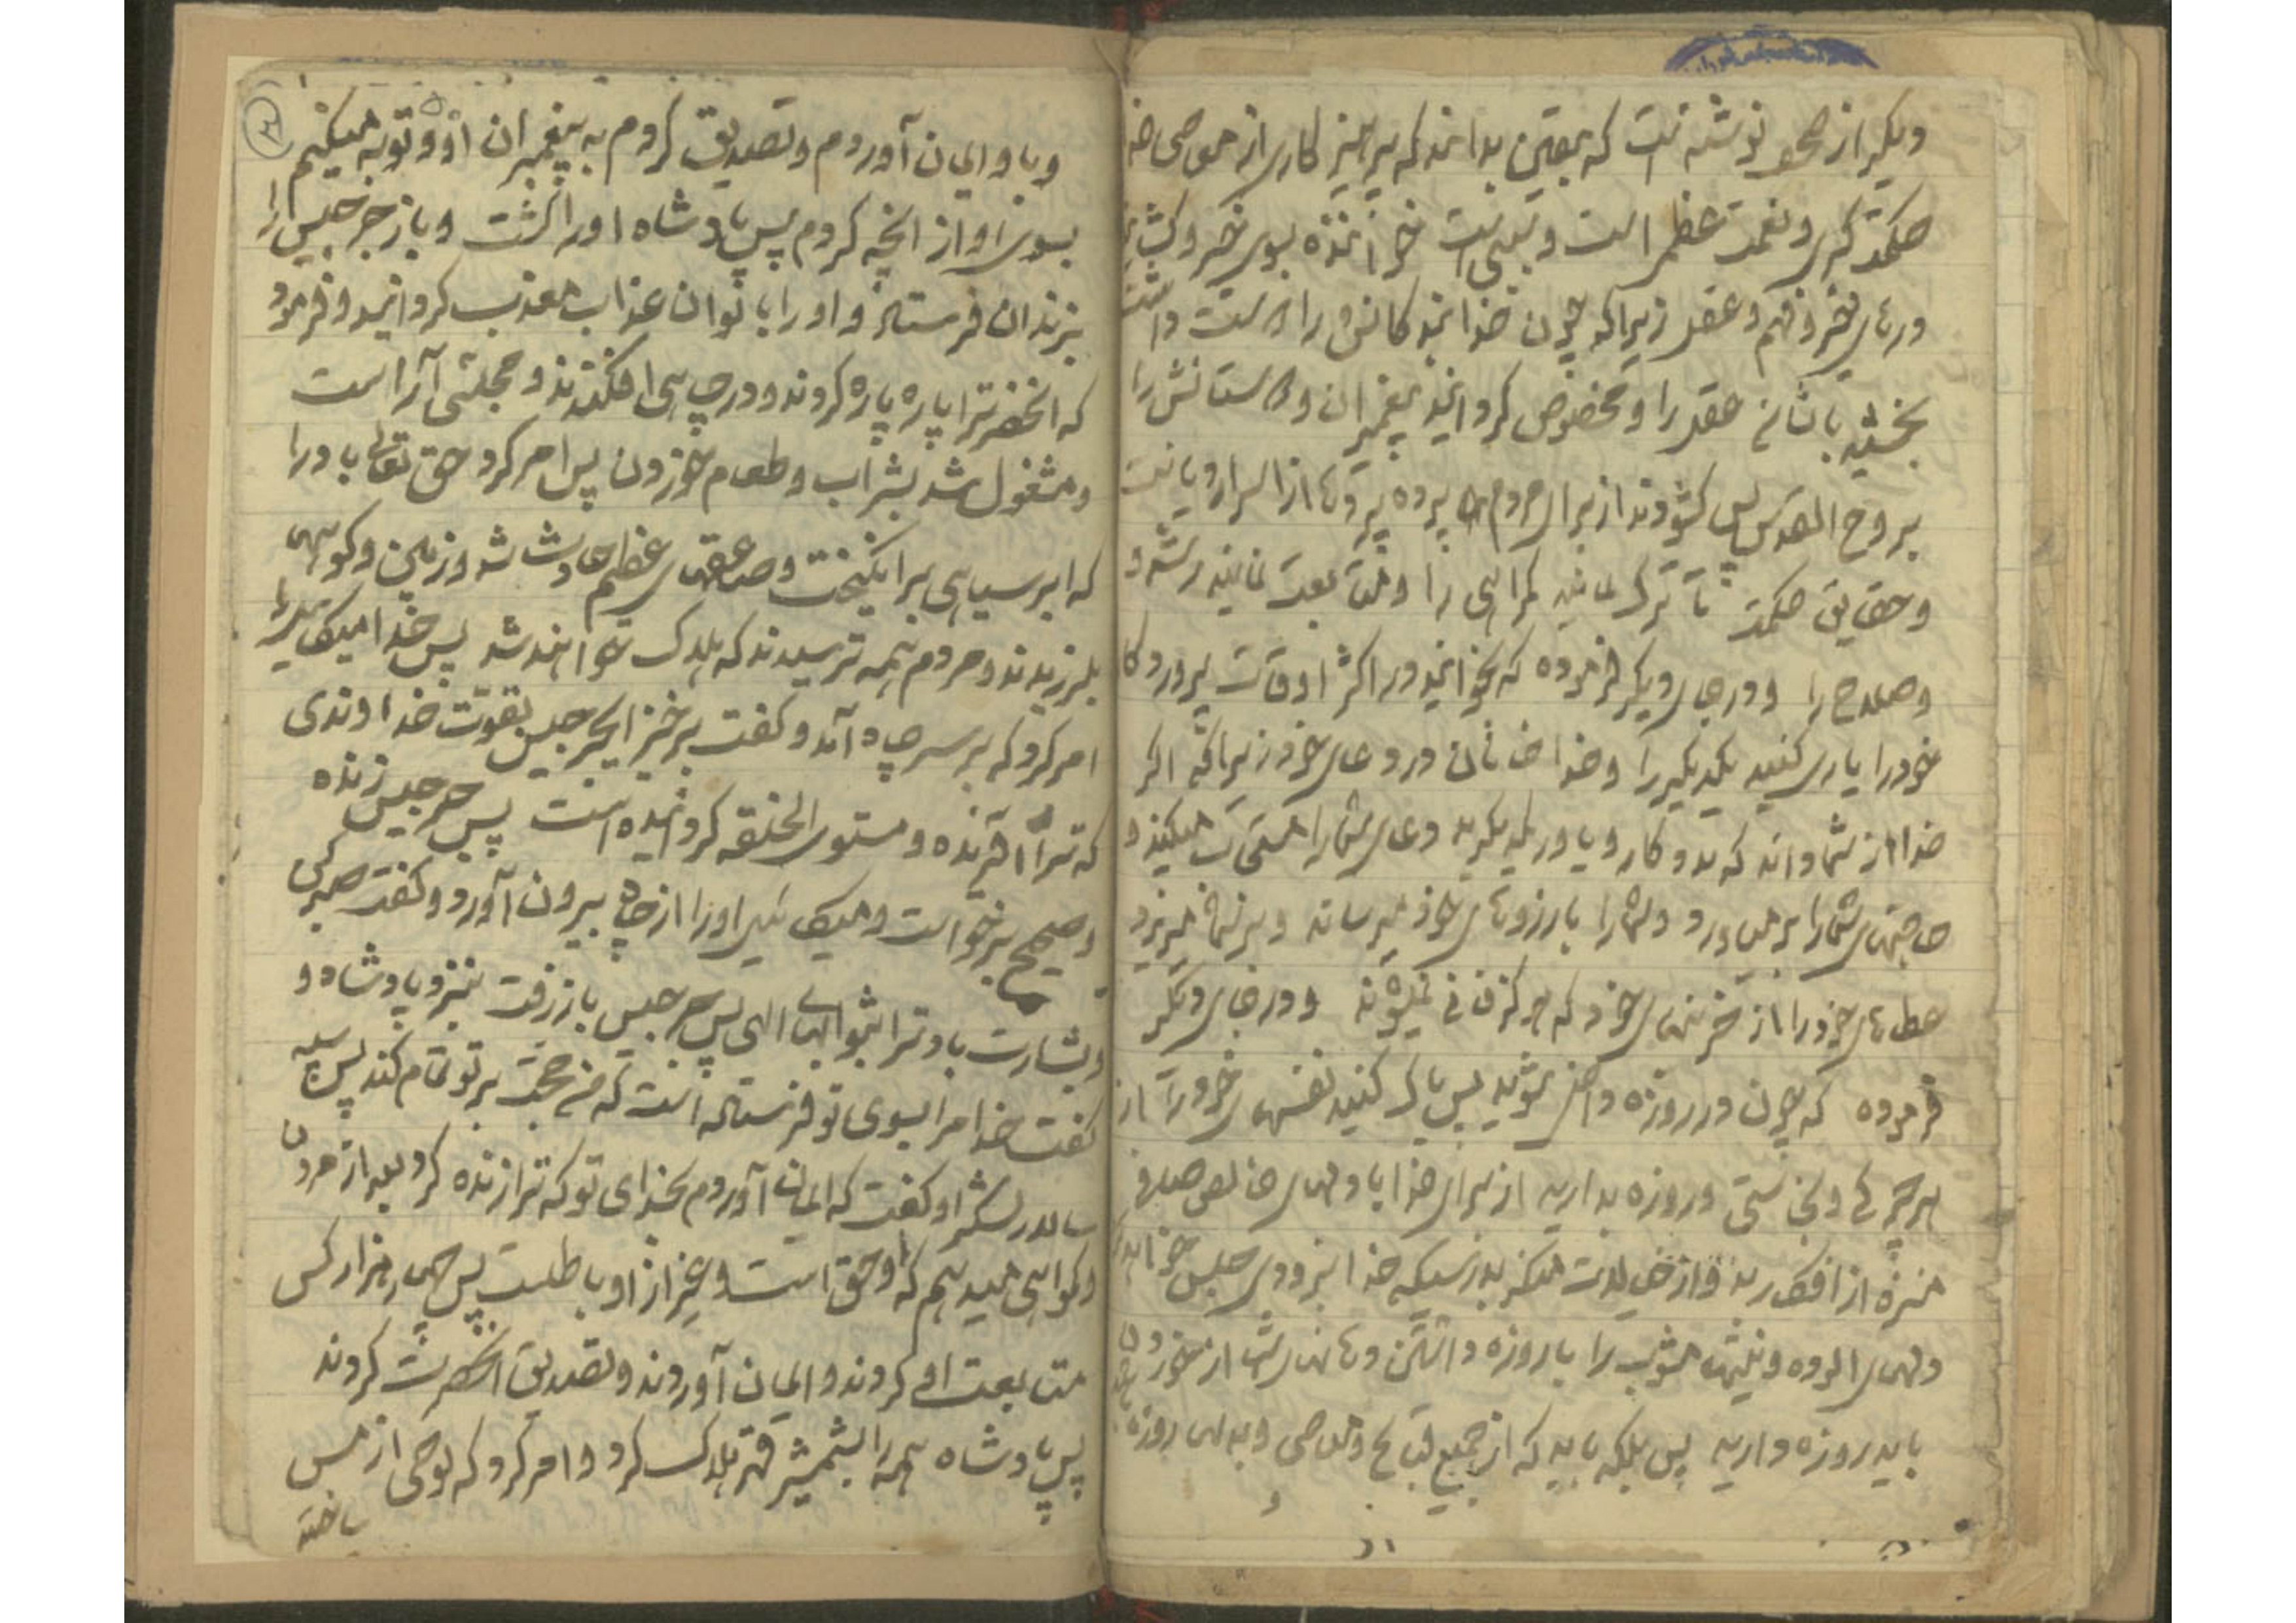 دیگر از صحف نوشته است که بیقین بدانید که پرهیز کاری از معاصی خدا
حکمت کبری و نعمت عظمی است و سببی است خواننده بسوی خیر و
درهای خیر و فهم و عقل زیراکه چون خداوند کانش را دوست داشت
بخشید بایشان عقل را و مخصوص گردانید پیغمبران و دوستانش را
بروح القدس پس گشودند از برای مردم پرده پردها از اسرار دیانت
و حقایق حکمت تا ترک نمایند گمراهی را و متابعت نمایند رشد و
و صلاح را و در جای دیگر فرموده که بخوانید در اکثر اوقات پروردگار
خود را یاری کنید یکدیگر را و خدا خوانان در دعای خود زیراکه اگر
خدا از شما داند که مددکار و یاور یکدیگرید دعای شما را مستجاب میکند و
حاجتهای شما را برمیاورد و شما را بارزوهای خود میرساند و بر شما میریزد
عطاهای خود را از خزینهای خود که هرگز فانی نمیشوند و در جای دیگر
فرموده که چون در روزه داخل شوید پس پاک کنید نفسهای خود را از
هر چرکی و نجاستی و روزه بدارید از برای خدا با دلهای خالص صاف
منزه از افکار بد و از خیالات منکر بدرستیکه خدا بزودی حبس خواهد
دلهای آلوده و نیتهای مشوب را با روزه داشتن دهانهای شما از خوردن
باید روزه دارید پس بلکه باید که از جمیع قبایح و معاصی و بدیها روزه
و باو ایمان آوردم و تصدیق کردم به پیغمبران او و توبه میکنیم
بسوی او از انچه کردم پس پادشاه او را کشت و باز جرجیس را
بزندان فرستاد و او را بانواع عذاب معذب گردانید و فرمود
که انحضرترا پاره پاره کردند و در چاهی افکندند و مجلسی آراست
و مشغول شد بشراب و طعام خوردن پس امر کرد حق تعالی باد را
که ابر سیاهی برانگیخت و صاعقهای عظیم حادث شد و زمین و کوهها
بلرزیدند و مردم همه ترسیدند که هلاک خواهند شد پس خدا میکائیل را
امر کرد که بر سر چاه آمد و گفت برخیز ایجرجیس بقوت خداوندی
که ترا آفریده و مستوی الخلقه گردانیده است پس جرجیس زنده
و صحیح برخواست و میکائیل او را از چاه بیرون آورد و گفت صبر کن
و بشارت باد ترا بثوابهای الهی پس جرجیس باز رفت بنزد پادشاه و
گفت خدا مرا بسوی تو فرستاده است که من حجت بر تو تمام کند پس سپه
سالار لشکر او گفت که ایمان آوردم بخدای تو که ترا زنده کرد بعد از مردن
و گواهی میدهم که او حق است و غیر از او باطلست پس چهار هزار کس
متابعت او کردند و ایمان آوردند و تصدیق انحضرت کردند
پس پادشاه همه را بشمشیر قهر هلاک کرد و امر کرد که لوحی از مس
ساخته